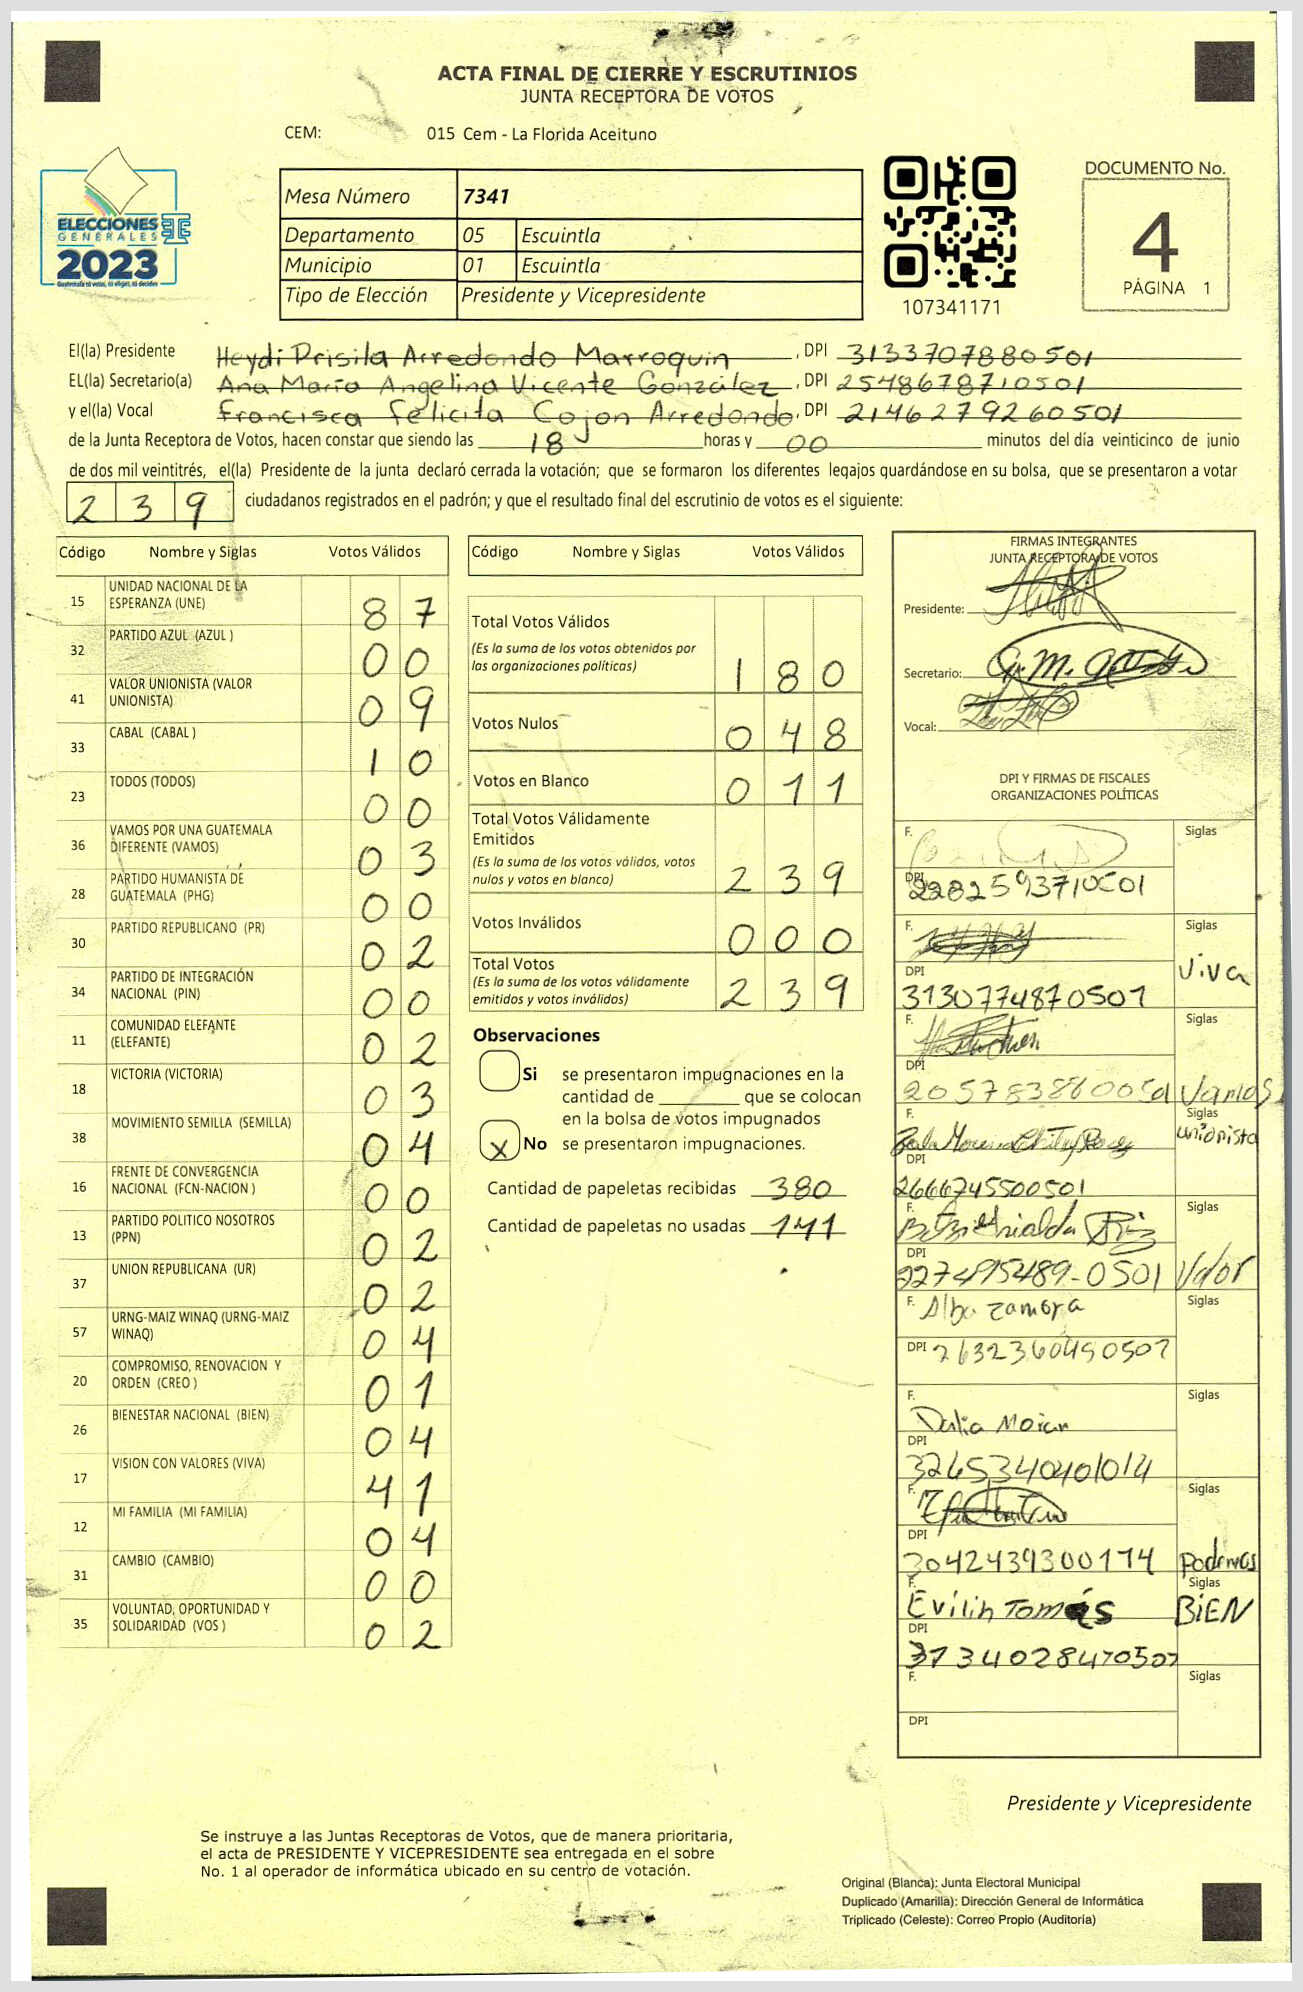 ACTA FINAL DE CIERRE Y ESCRUTINIOS
JUNTA RECEPTORA DE VOTOS
CEM: 015 Cem - La Florida Aceituno
ELECCIONES
GENERALES
2023
Guatemala tú votas, tú eliges, tú decides
Mesa Número 7341
Departamento 05 Escuintla
Municipio 01 Escuintla
Tipo de Elección Presidente y Vicepresidente
107341171
DOCUMENTO No.
4
PÁGINA 1
El(la) Presidente Heydi Prisila Arredondo Marroquin , DPI 3133707880501
EL(la) Secretario(a) Ana María Angelina Vicente González , DPI 2548678710501
y el(la) Vocal Francisca Felicita Cojon Arredondo , DPI 2146279260501
de la Junta Receptora de Votos, hacen constar que siendo las 18 horas y 00 minutos del día veinticinco de junio
de dos mil veintitrés, el(la) Presidente de la junta declaró cerrada la votación; que se formaron los diferentes legajos quardándose en su bolsa, que se presentaron a votar
239 ciudadanos registrados en el padrón; y que el resultado final del escrutinio de votos es el siguiente:
Código Nombre y Siglas Votos Válidos
15 UNIDAD NACIONAL DE LA ESPERANZA (UNE) 87
32 PARTIDO AZUL (AZUL ) 00
41 VALOR UNIONISTA (VALOR UNIONISTA) 09
33 CABAL (CABAL ) 10
23 TODOS (TODOS) 00
36 VAMOS POR UNA GUATEMALA DIFERENTE (VAMOS) 03
28 PARTIDO HUMANISTA DE GUATEMALA (PHG) 00
30 PARTIDO REPUBLICANO (PR) 02
34 PARTIDO DE INTEGRACIÓN NACIONAL (PIN) 00
11 COMUNIDAD ELEFANTE (ELEFANTE) 02
18 VICTORIA (VICTORIA) 03
38 MOVIMIENTO SEMILLA (SEMILLA) 04
16 FRENTE DE CONVERGENCIA NACIONAL (FCN-NACION ) 00
13 PARTIDO POLITICO NOSOTROS (PPN) 02
37 UNION REPUBLICANA (UR) 02
57 URNG-MAIZ WINAQ (URNG-MAIZ WINAQ) 04
20 COMPROMISO, RENOVACION Y ORDEN (CREO ) 01
26 BIENESTAR NACIONAL (BIEN) 04
17 VISION CON VALORES (VIVA) 41
12 MI FAMILIA (MI FAMILIA) 04
31 CAMBIO (CAMBIO) 00
35 VOLUNTAD, OPORTUNIDAD Y SOLIDARIDAD (VOS ) 02
Código Nombre y Siglas Votos Válidos
Total Votos Válidos
(Es la suma de los votos obtenidos por
las organizaciones políticas) 180
Votos Nulos 048
Votos en Blanco 011
Total Votos Válidamente
Emitidos
(Es la suma de los votos válidos, votos
nulos y votos en blanco) 239
Votos Inválidos 000
Total Votos
(Es la suma de los votos válidamente
emitidos y votos inválidos) 239
Observaciones
Si se presentaron impugnaciones en la
cantidad de ________ que se colocan
en la bolsa de votos impugnados
X No se presentaron impugnaciones.
Cantidad de papeletas recibidas 380
Cantidad de papeletas no usadas 141
FIRMAS INTEGRANTES
JUNTA RECEPTORA DE VOTOS
Presidente:
Secretario:
Vocal:
DPI Y FIRMAS DE FISCALES
ORGANIZACIONES POLÍTICAS
F. Siglas
DPI
F. Siglas
Viva
DPI 3130774870501
F. Siglas
DPI Vamos
F. Siglas
unionista
DPI 2666745500501
F. Siglas
DPI Valor
F. Alba Zamora Siglas
DPI
F. Siglas
Dalia
DPI
3265340401014
F. Siglas
DPI
3042439300114 Podemos
F. Evilin Tomás Siglas
BiEN
DPI
3134028470501
F. Siglas
DPI
Presidente y Vicepresidente
Se instruye a las Juntas Receptoras de Votos, que de manera prioritaria,
el acta de PRESIDENTE Y VICEPRESIDENTE sea entregada en el sobre
No. 1 al operador de informática ubicado en su centro de votación.
Original (Blanca): Junta Electoral Municipal
Duplicado (Amarilla): Dirección General de Informática
Triplicado (Celeste): Correo Propio (Auditoría)